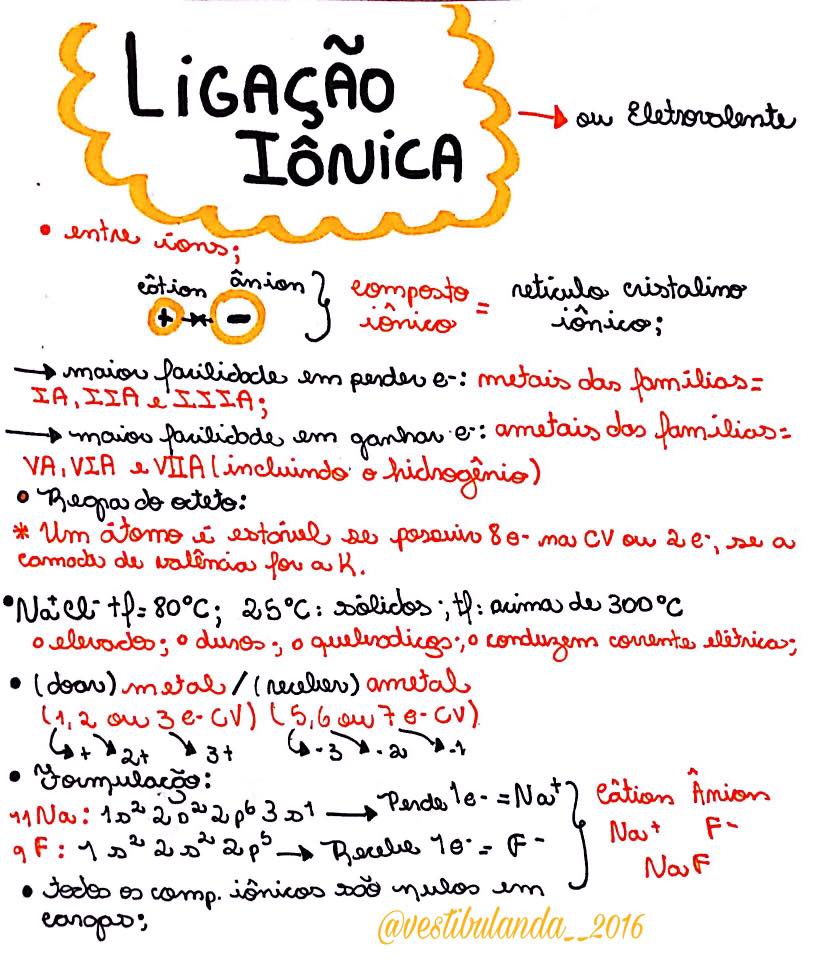 LIGAÇÃO
IÔNICA
→ ou Eletrovalente
• entre íons;
cátion ânion } composto = retículo cristalino
+ - iônico iônico;
→ maior facilidade em perder e-: metais das famílias=
IA, IIA e IIIA;
→ maior facilidade em ganhar e-: ametais das famílias=
VA, VIA e VIIA (incluindo o hidrogênio)
• Regra do octeto:
* Um átomo é estável se possuir 8 e- na CV ou 2 e-, se a
camada de valência for a K.
• Na⁺Cl⁻ tf= 80°C; 25°C: sólidos; tf: acima de 300°C
o elevados; o duros; o quebradiços; o conduzem corrente elétrica;
• (doar) metal / (receber) ametal
(1, 2 ou 3 e- CV) (5, 6 ou 7 e- CV)
+ 2+ 3+ -3 -2 -1
• Formulação:
11Na: 1s² 2s² 2p⁶ 3s¹ → Perde 1e- = Na⁺
9F: 1s² 2s² 2p⁵ → Recebe 1e- = F⁻
Cátion Ânion
Na⁺ F⁻
NaF
• todos os comp. iônicos são nulos em
cargas;
@vestibulanda__2016